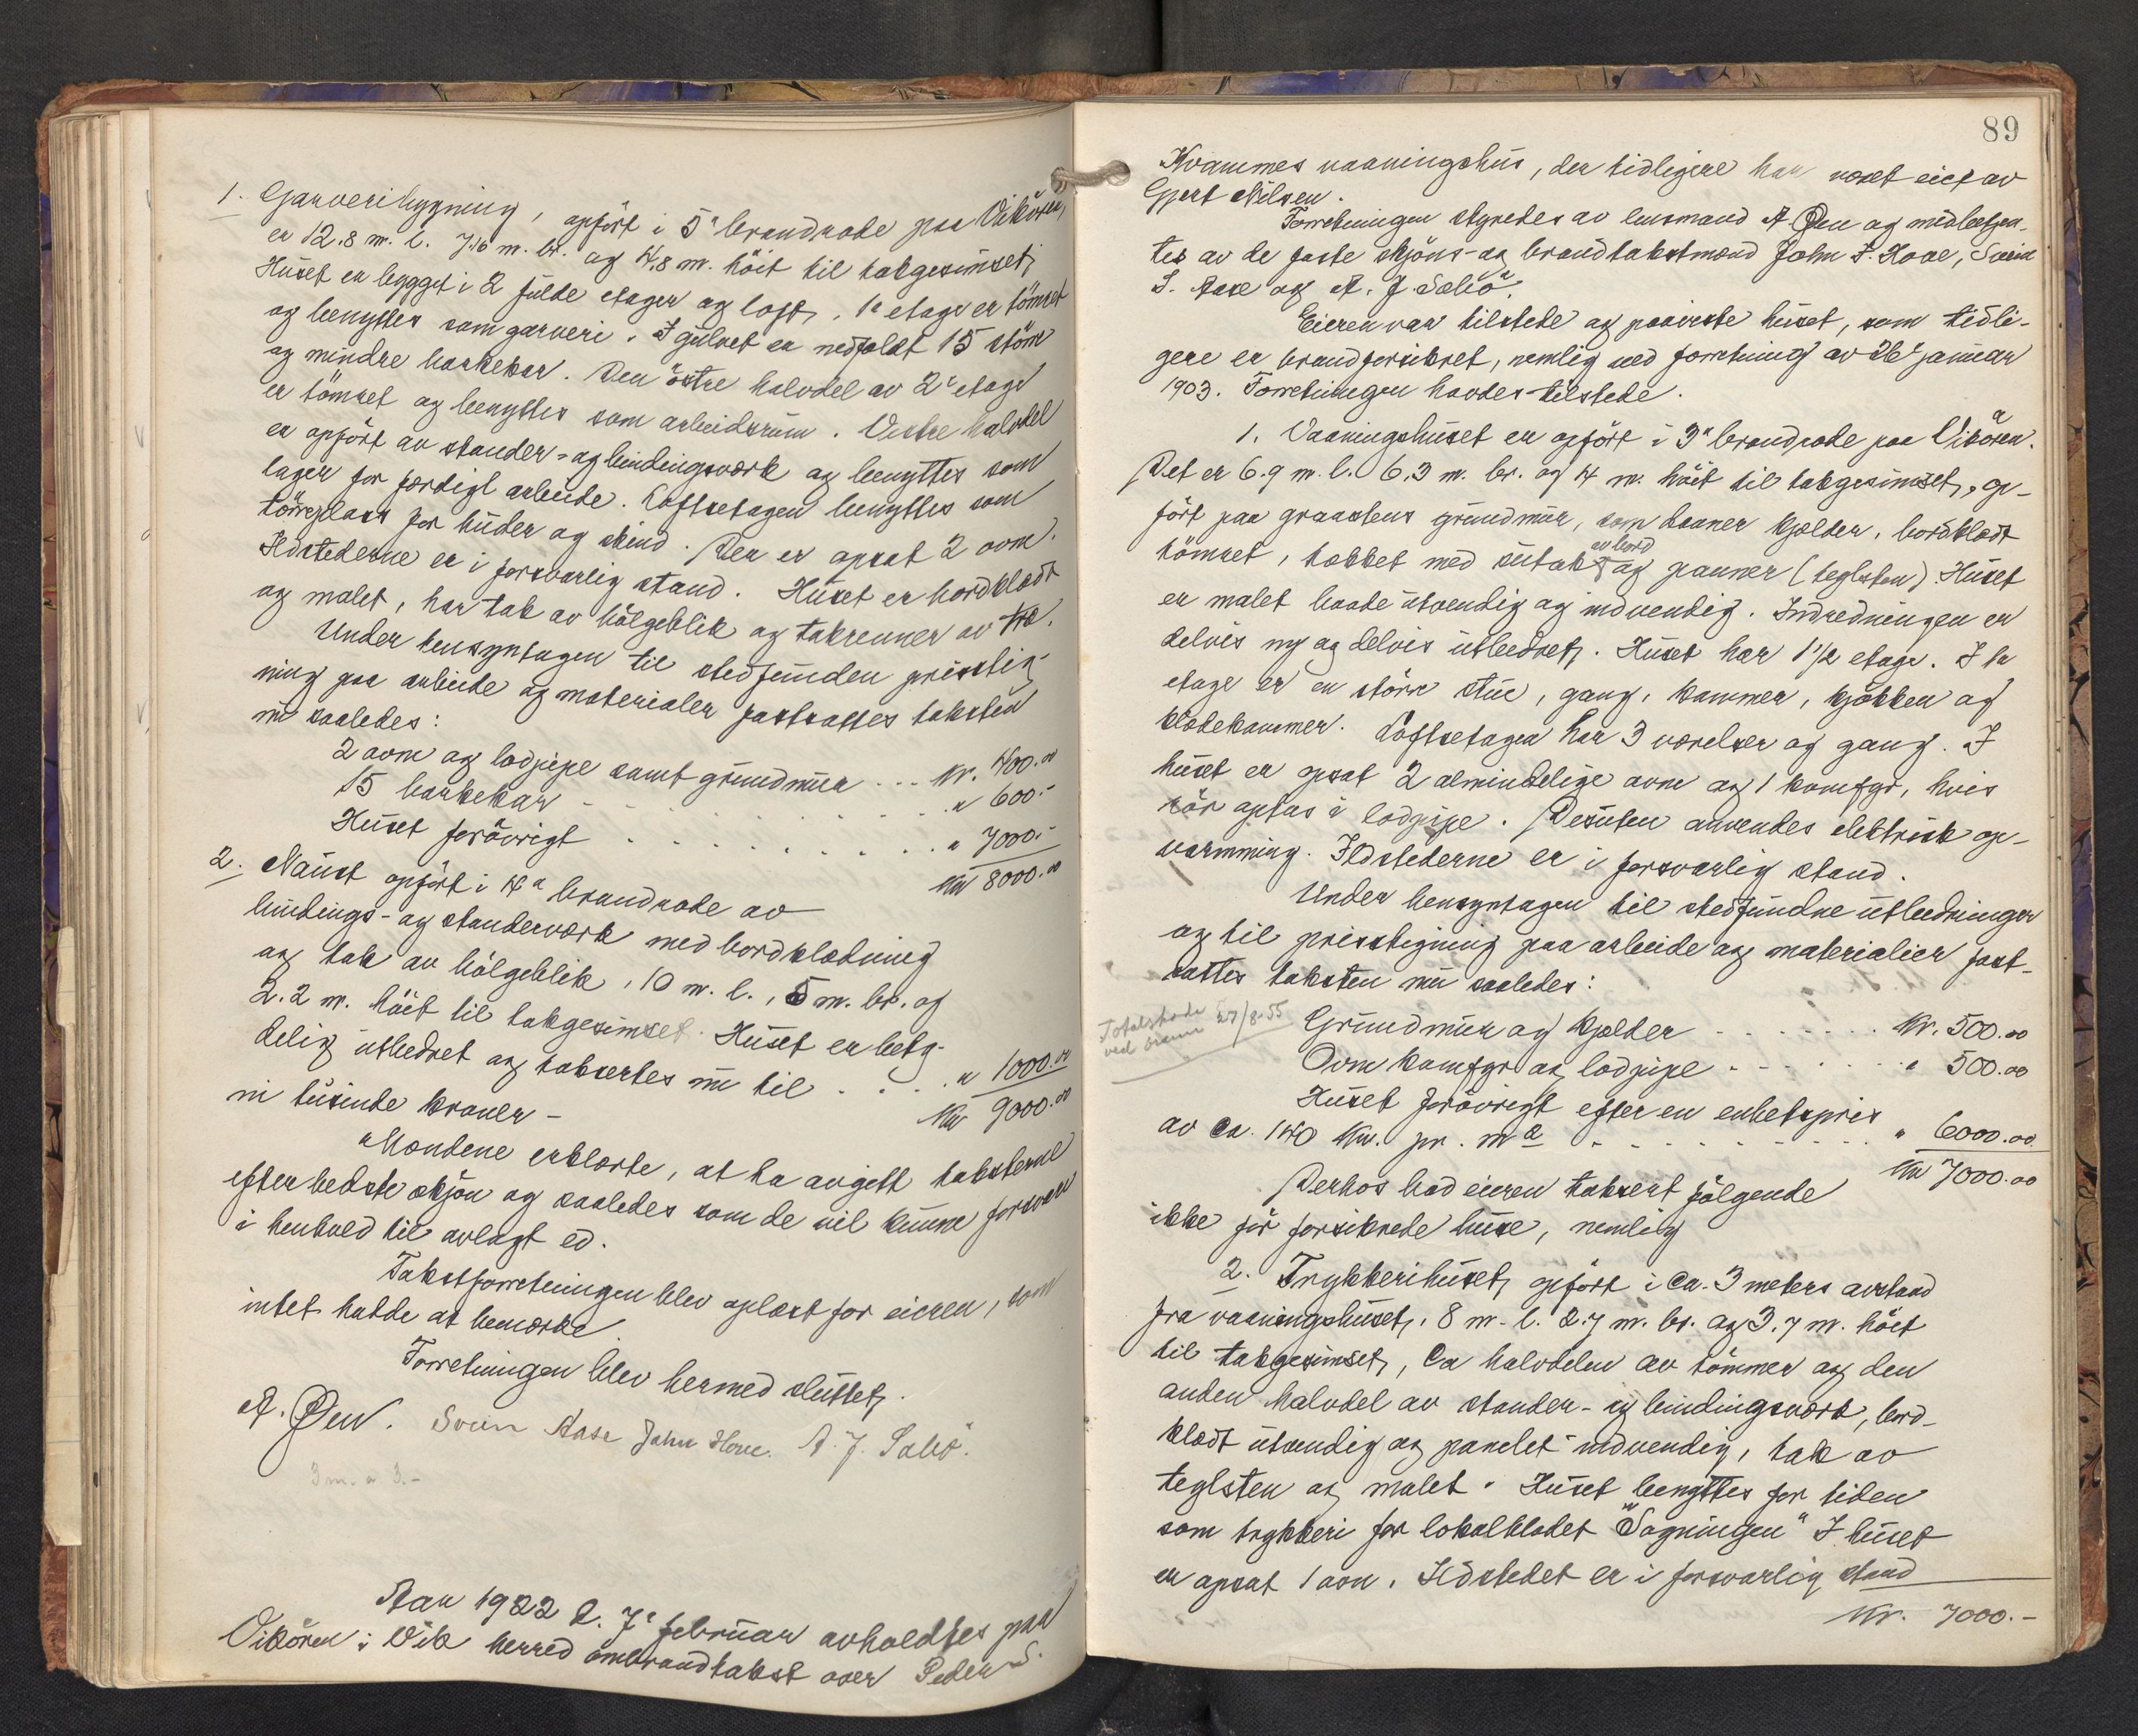 1. Garveribygning, opført i 5te brandrode paa Vikøren,
er 12.8 m. l. 7.6 m. br. og 4.8 m. höit til takgesimset,
Huset er bygget i 2 fulde etager og loft. 1ste etage er tömret
og benyttes som garveri. I gulvet er nedfældt 15 störr
og mindre barkekar. Den östre halvdel av 2den etage
er tömret og benyttes som arbeidsrum. Vestre halvdel
er opfört av stander- og bindingsværk og benyttes som
lager for færdigt arbeide. Loftsetagen benyttes som
törreplass for huder og skind. Der er opsat 2 ovne.
Ildstederne er i forsvarlig stand. Huset er bordklædt
og malet, har tak av bölgeblik og takrenner av træ.
Under hensyntagen til stedfunden prisstig-
ning paa arbeide og materialer fastsattes taksten
nu saaledes:
2 ovne og lodpipe samt grundmur ... kr. 400.00
15 barkekar . . . . " 600.-
Huset forövrigt . . . . " 7000.-
Kr 8000.00
2. Naust opfört i 4de brandrode av
bindings- og standerværk med bordklædning
og tak av bölgeblik, 10 m. l., 5 m. br. og
2.2 m. höit til takgesimset. Huset er bety-
delig utbedret og taksertes nu til . . . . " 1000.00
Kr 9000.00
ni tusinde kroner -
Mændene erklærte, at ha avgitt taksterne
efter bedste skjön og saaledes som de vil kunne forsvare
i henhold til avlagt ed.
Takstforretningen blev oplæst for eieren, som
intet hadde at bemærke.
Forretningen blev hermed sluttet.
A. Øen. Svein Aase John Hove. A. J. Sælió.
3 m. a 3.-
Aar 1922 d. 7de februar avholdtes paa
Vikören i Vik herred ombrandtakst over Peder S.
89
Kvammes vaaningshus, der tidligere har været eiet av
Gjert Nilsen.
Forretningen styredes av lensmand A Øen og medbetjen-
tes av de faste skjöns- og brandtakstmænd John J. Hove, Svein
S. Aase og A. J. Sælió.
Eieren var tilstede og paaviste huset, som tidli-
gere er brandforsikret, nemlig ved forretning av 26de januar
1903. Forretningen havdes tilstede.
1. Vaaningshuset er opfört i 3de brandrode paa Vikören.
Det er 6.9 m. l. 6.3 m. br. og 4 m. höit til takgesimset, op-
fört paa graastens grundmur, som danner kjelder, bordklædt
tömret, tækket med sutak av bord og panner (teglsten). Huset
er malet baade utvendig og indvendig. Indredningen er
delvis ny og delvis utbedret. Huset har 1 1/2 etage. I 1ste
etage er en större stue, gang, kammer, kjökken og
klædekammer. Loftsetagen har 3 værelser og gang. I
huset er opsat 2 almindelige ovne og 1 komfyr, hvis
rör optas i lodpipe. Desuten anvendes elektrisk op-
varmning. Ildstederne er i forsvarlig stand.
Under hensyntagen til stedfundne utbedninger
og til prisstigning paa arbeide og materialier fast-
sattes taksten nu saaledes:
Totalskade 27/8-55
ved brann
Grundmur og kjelder . . . . Kr. 500.00
Ovne komfyr og lodpipe . . . . " 500.00
Huset forövrigt efter en enhetspris
av ca. 140 kr. pr. m2 . . . . " 6000.00
Kr 7000.00
Derhos bad eieren taksert fölgende
ikke för forsikrede huse, nemlig
2. Trykkerihuset, opfört i ca. 3 meters avstand
fra vaaningshuset, 8 m. l. 2.7 m. br. og 3.7 m. höit
til takgesimset, ca halvdelen av tömmer og den
anden halvdel av stander- og bindingsværk, bord-
klædt utvendig og panelet indvendig, tak av
teglsten og malet. Huset benyttes for tiden
som trykkeri for lokalbladet "Sogningen" I huset
er opsat 1 ovn. Ildstedet er i forsvarlig stand
Kr. 7000.-